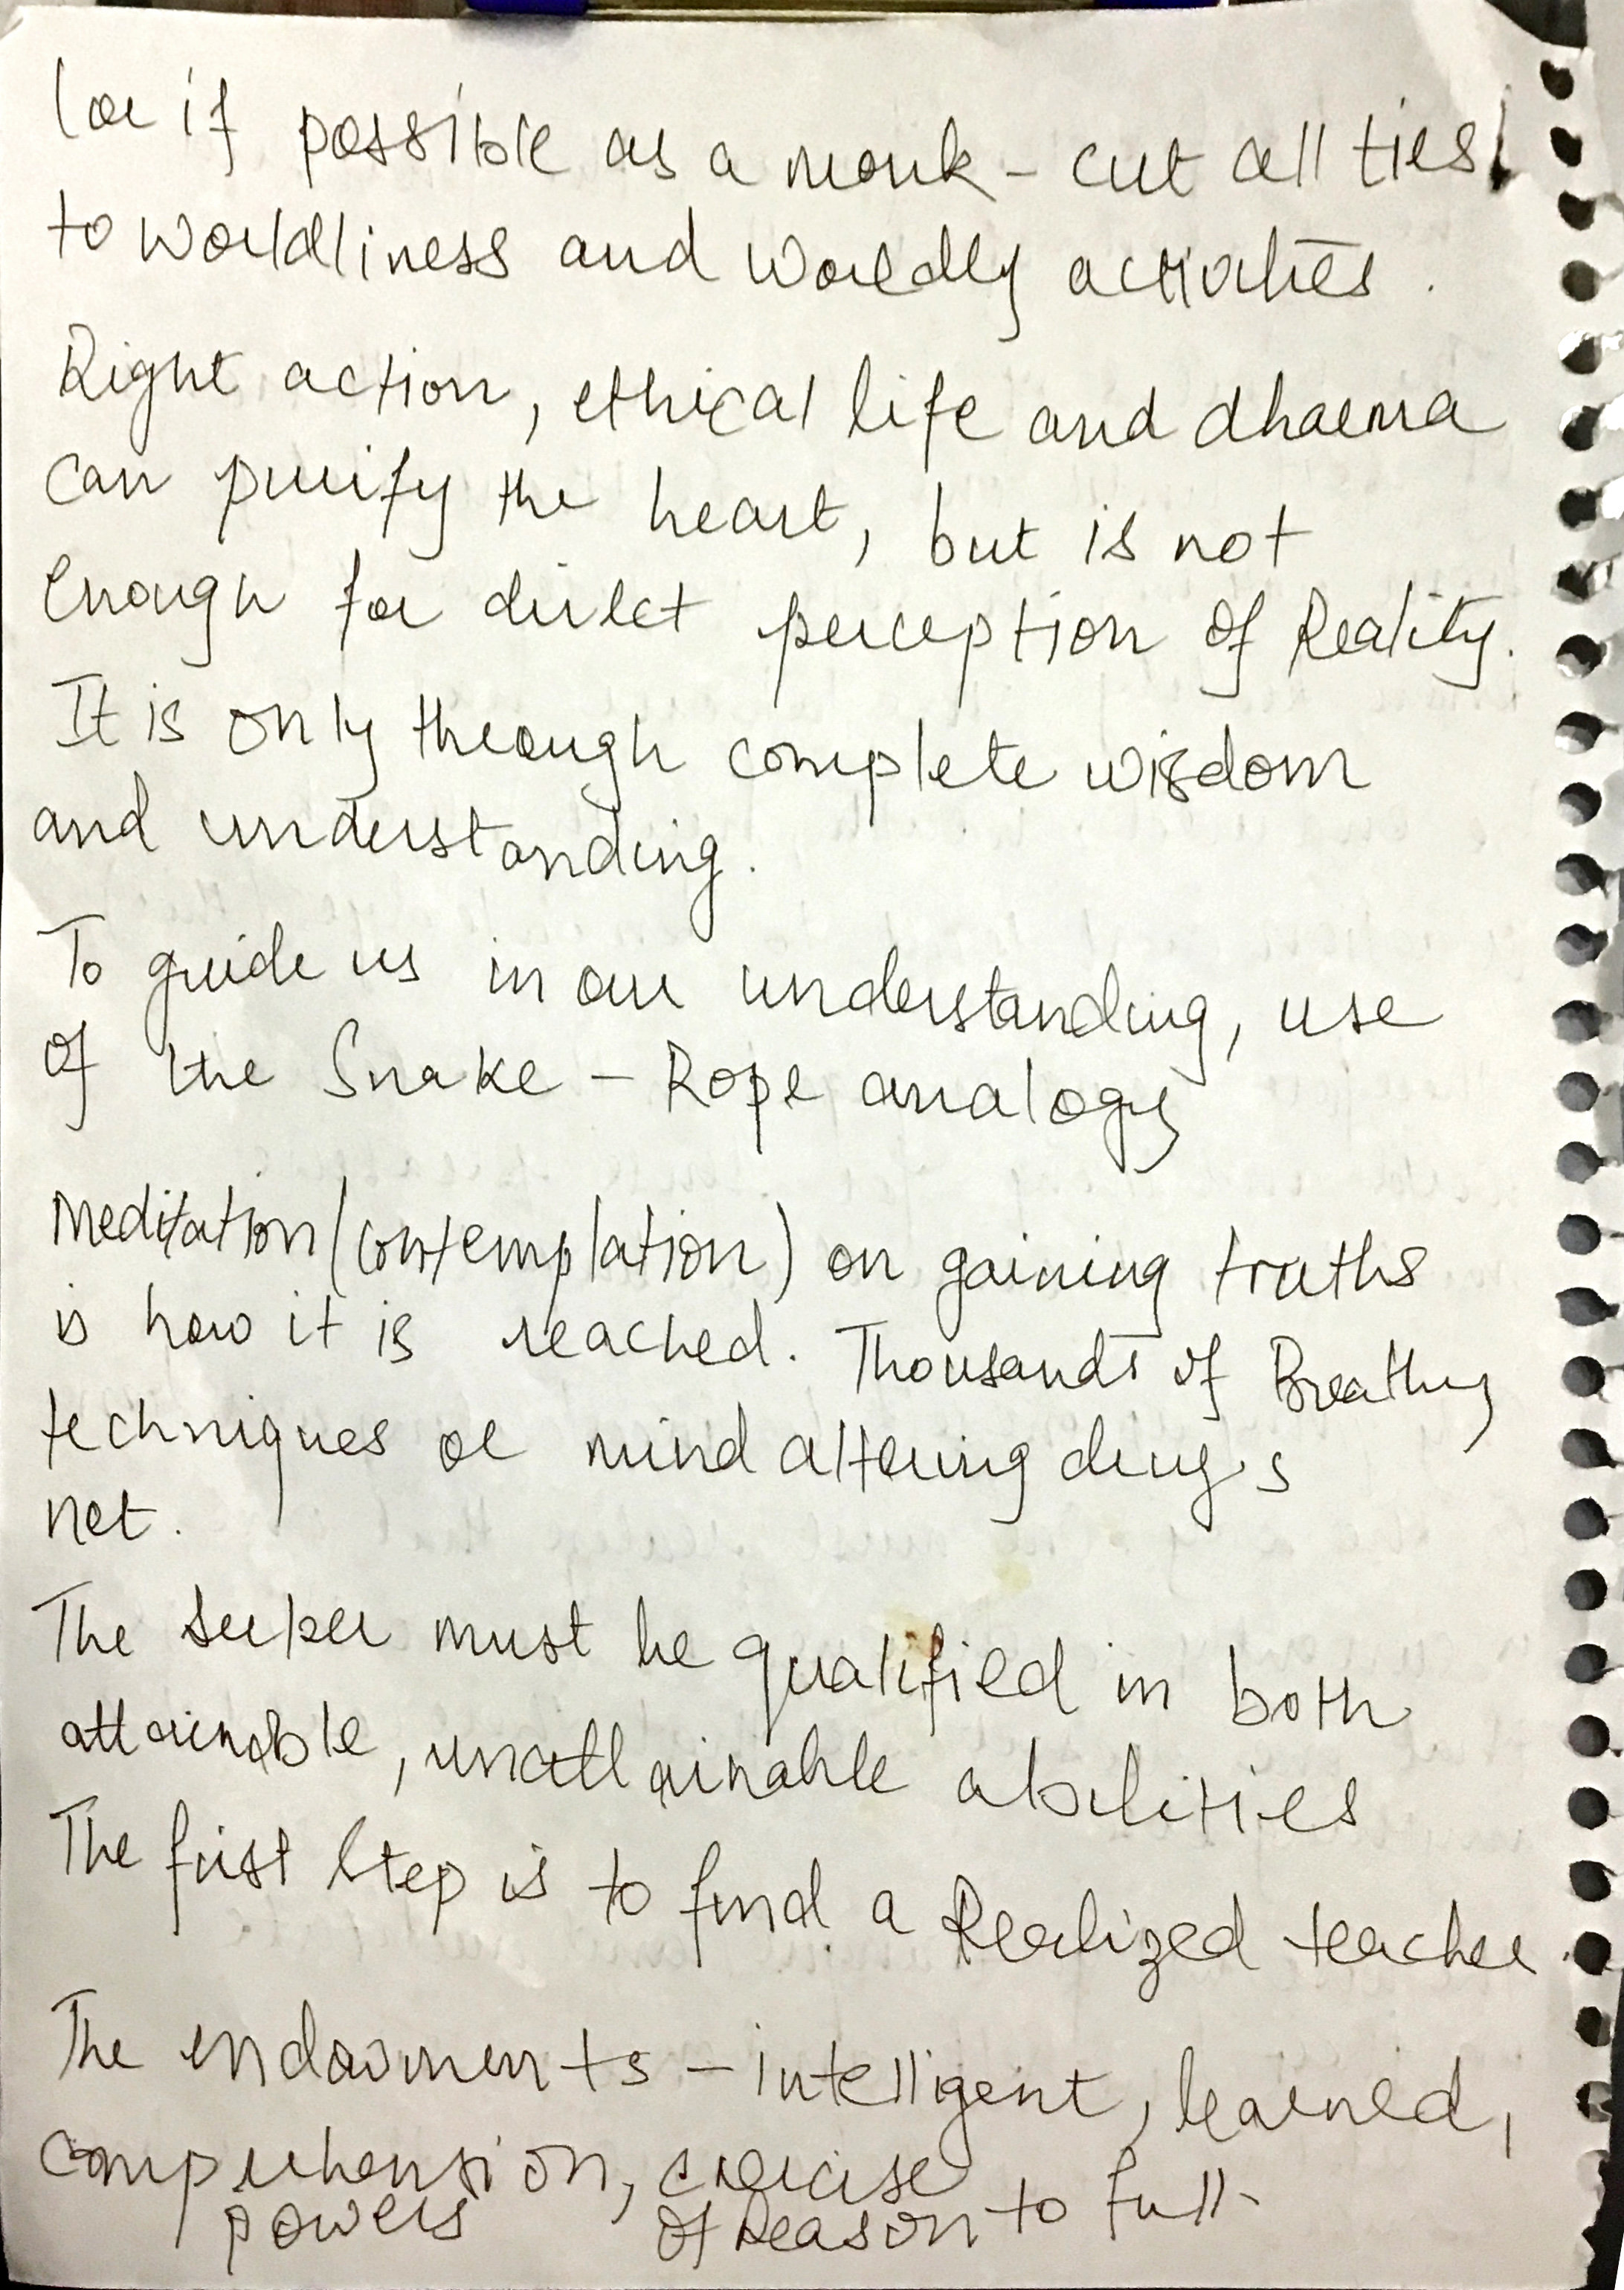 (or if possible as a monk - cut all ties)
to worldliness and worldly activities.
Right action, ethical life and dharma
can purify the heart, but is not
enough for direct perception of Reality.
It is only through complete wisdom
and understanding.
To guide us in our understanding, use
of the Snake - Rope analogy
Meditation (contemplation) on gaining truths
is how it is reached. Thousands of Breathing
techniques or mind altering drugs
not.
The seeker must be qualified in both
attainable, unattainable abilities
The first step is to find a Realized teacher.
The endowments - intelligent, learned,
comprehension, exercise
powers of Reason to full.